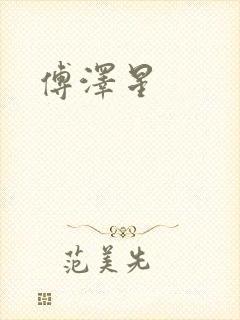 傅澤星
范美先